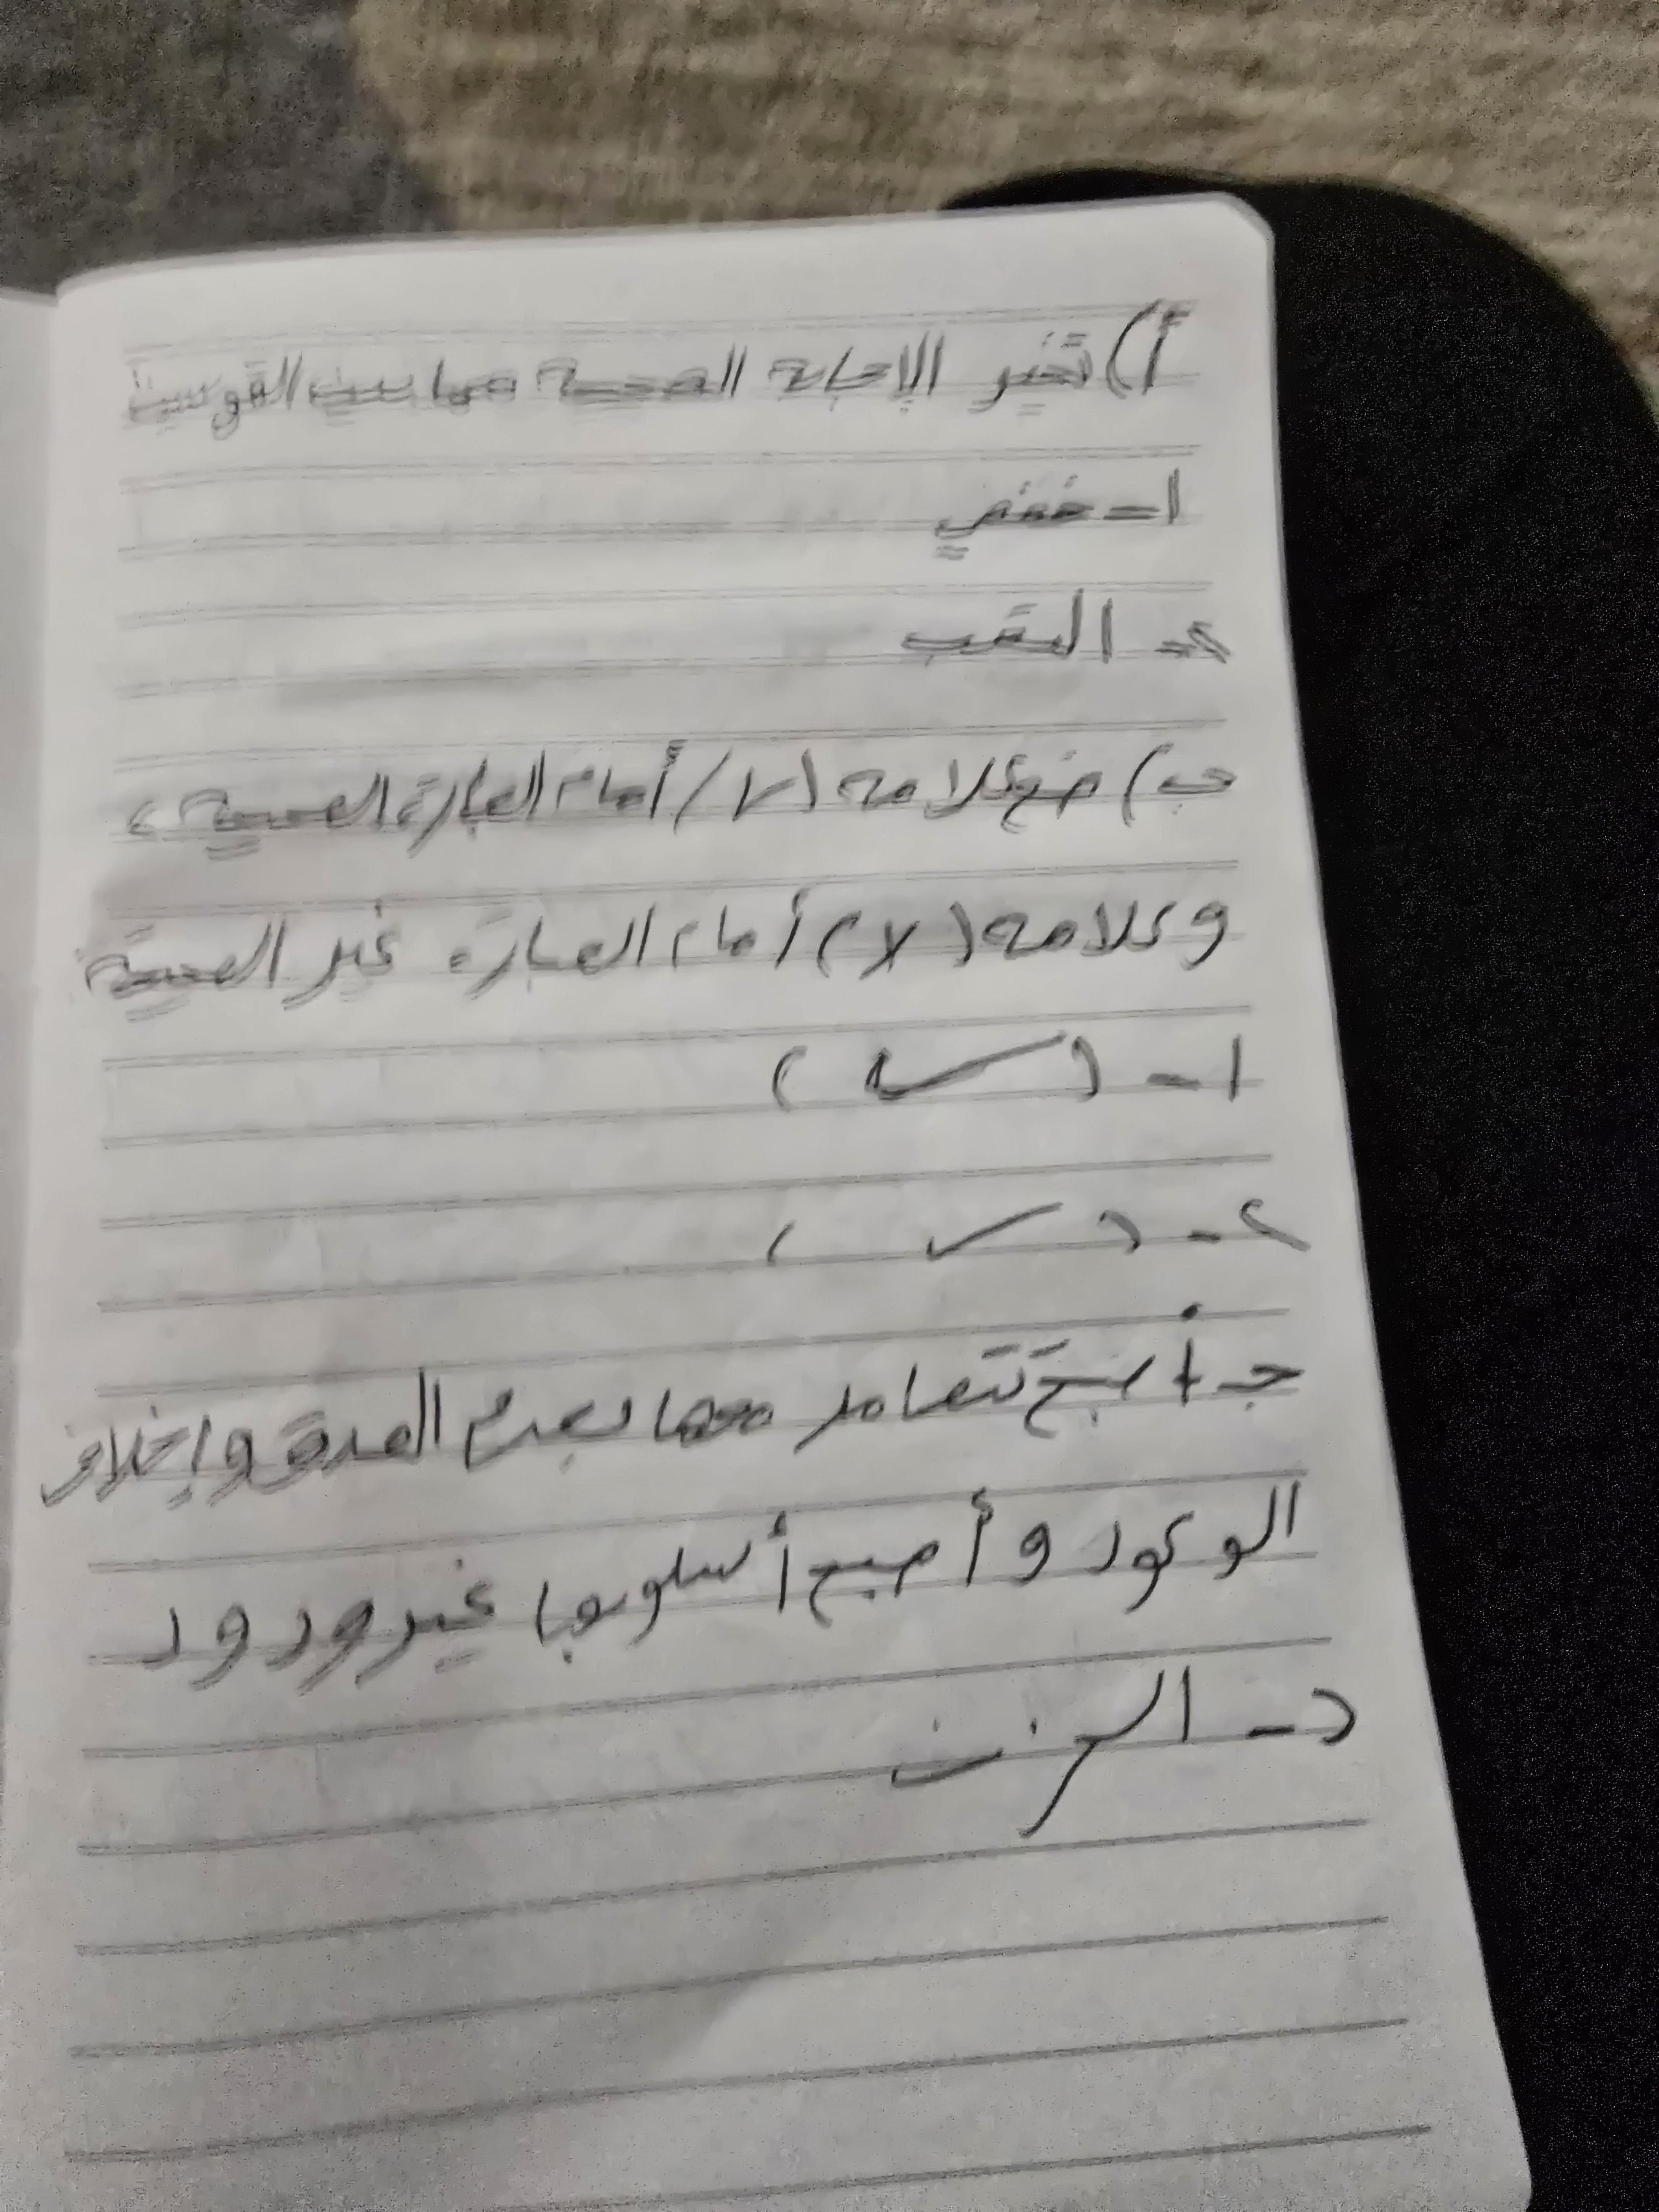 أ) تخير الإجابة الصحيحة مما بين القوسين
١-
٢- التعب
ب) ضع علامة (√) أمام العبارة الصحيحة،
وعلامة (X) أمام العبارة غير الصحيحة
١- (✓)
٢- (✓)
ج- أصبح تتعامل معها بعدم الصدق وإخلاف
الوعود وأصبح أسلوبها غير ودود
د- الحزن